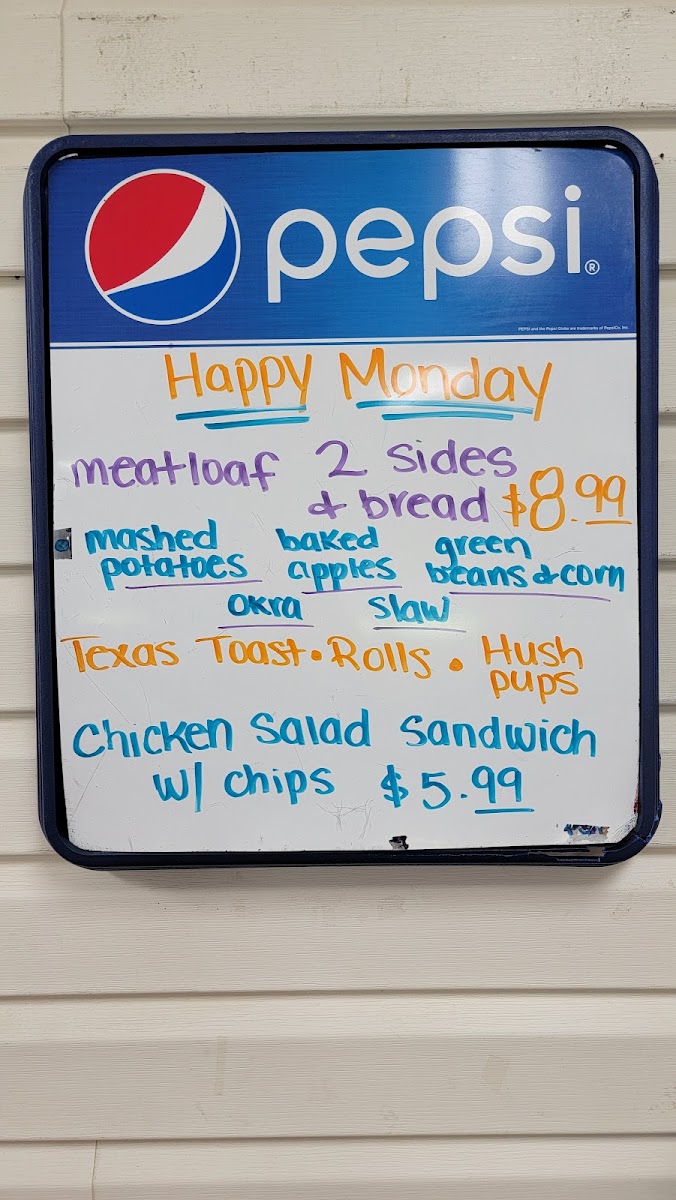 pepsi®
PEPSI and the Pepsi Globe are trademarks of PepsiCo, Inc.
Happy Monday
meatloaf 2 sides
& bread $8.99
mashed baked green
potatoes apples beans & corn
okra slaw
Texas Toast • Rolls • Hush
pups
Chicken Salad Sandwich
w/ chips $5.99